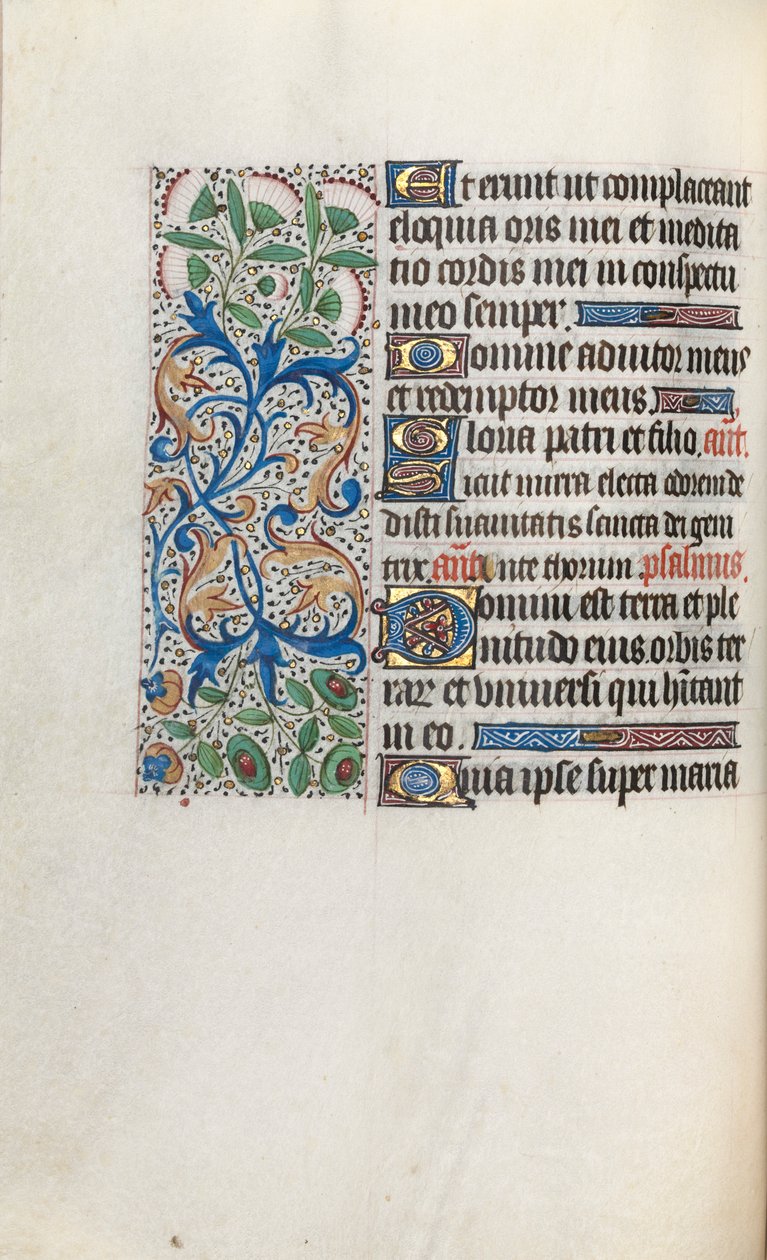 Et erunt ut complaceant
eloquia oris mei et medita
tio cordis mei in conspectu
meo semper.
Domine adiutor meus
et redemptor meus.
Gloria patri et filio. añt.
Sicut mirra electa odorem de
disti suavitatis sancta dei geni
trix. añt. Ante thorum psalmus.
Domini est terra et ple
nitudo eius. orbis ter
raꝝ et vniuersi qui hĩtant
in eo.
Quia ipse super maria